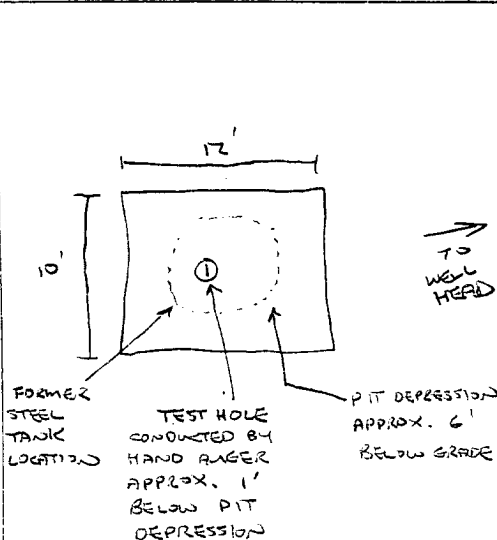 12'
10'
①
TO
WELL
HEAD
FORMER
STEEL
TANK
LOCATION
TEST HOLE
CONDUCTED BY
HAND AUGER
APPROX. 1'
BELOW PIT
DEPRESSION
PIT DEPRESSION
APPROX. 6'
BELOW GRADE